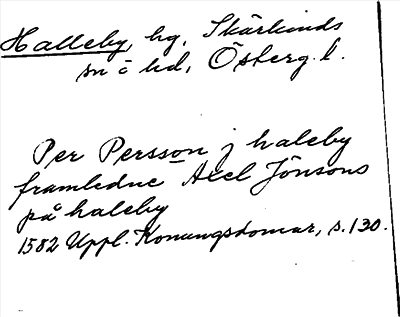 Halleby, hg, Skärkinds
sn o hd, Österg. l.
Per Persson j haleby
framledne Axel Jönsons
på haleby
1582 Uppl. Konungsdomar, s. 130.